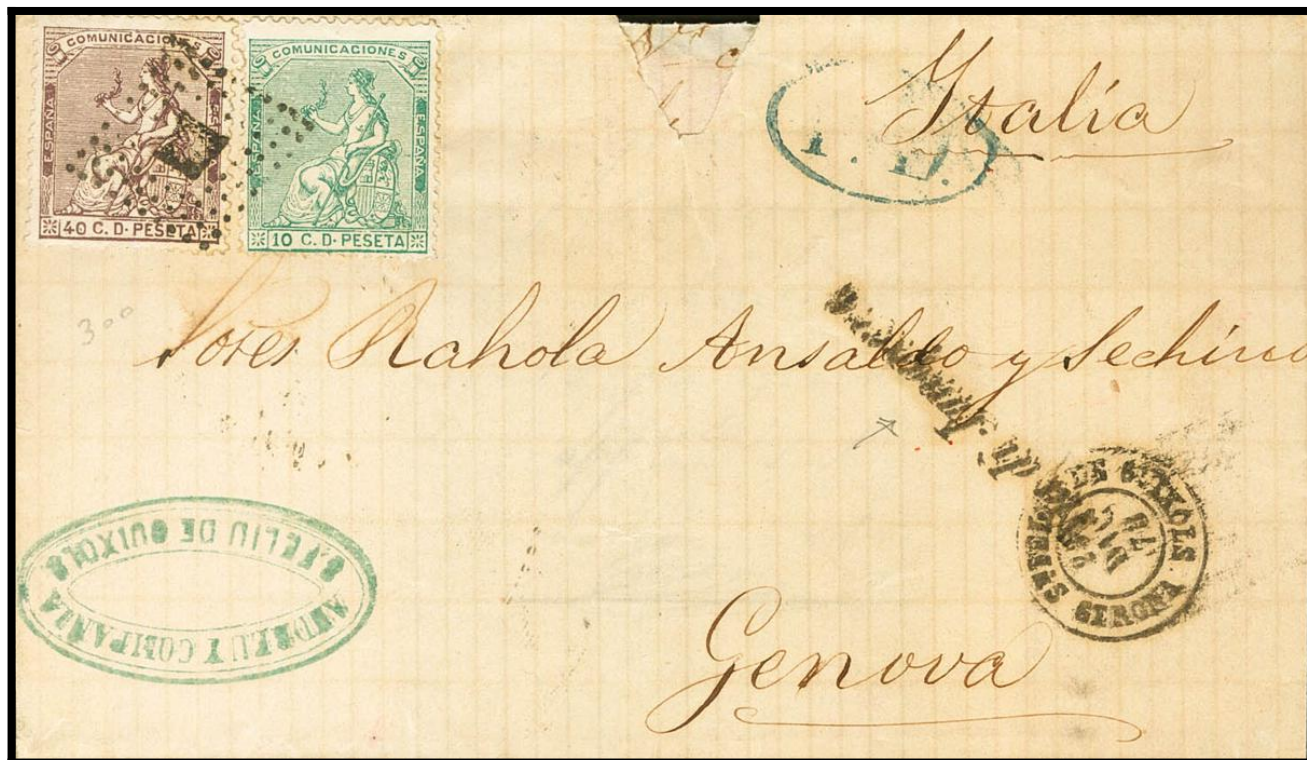 COMUNICACIONES
ESPAÑA
ESPAÑA
40 C. D. PESETA
COMUNICACIONES
ESPAÑA
ESPAÑA
10 C. D. PESETA
Italia
300
Sores Rahola Ansaldo y
S. FELIU DE GUIXOLS
ANDREU Y COMPAÑIA
S. FELIU DE GUIXOLS
GERONA
DIC
Genova